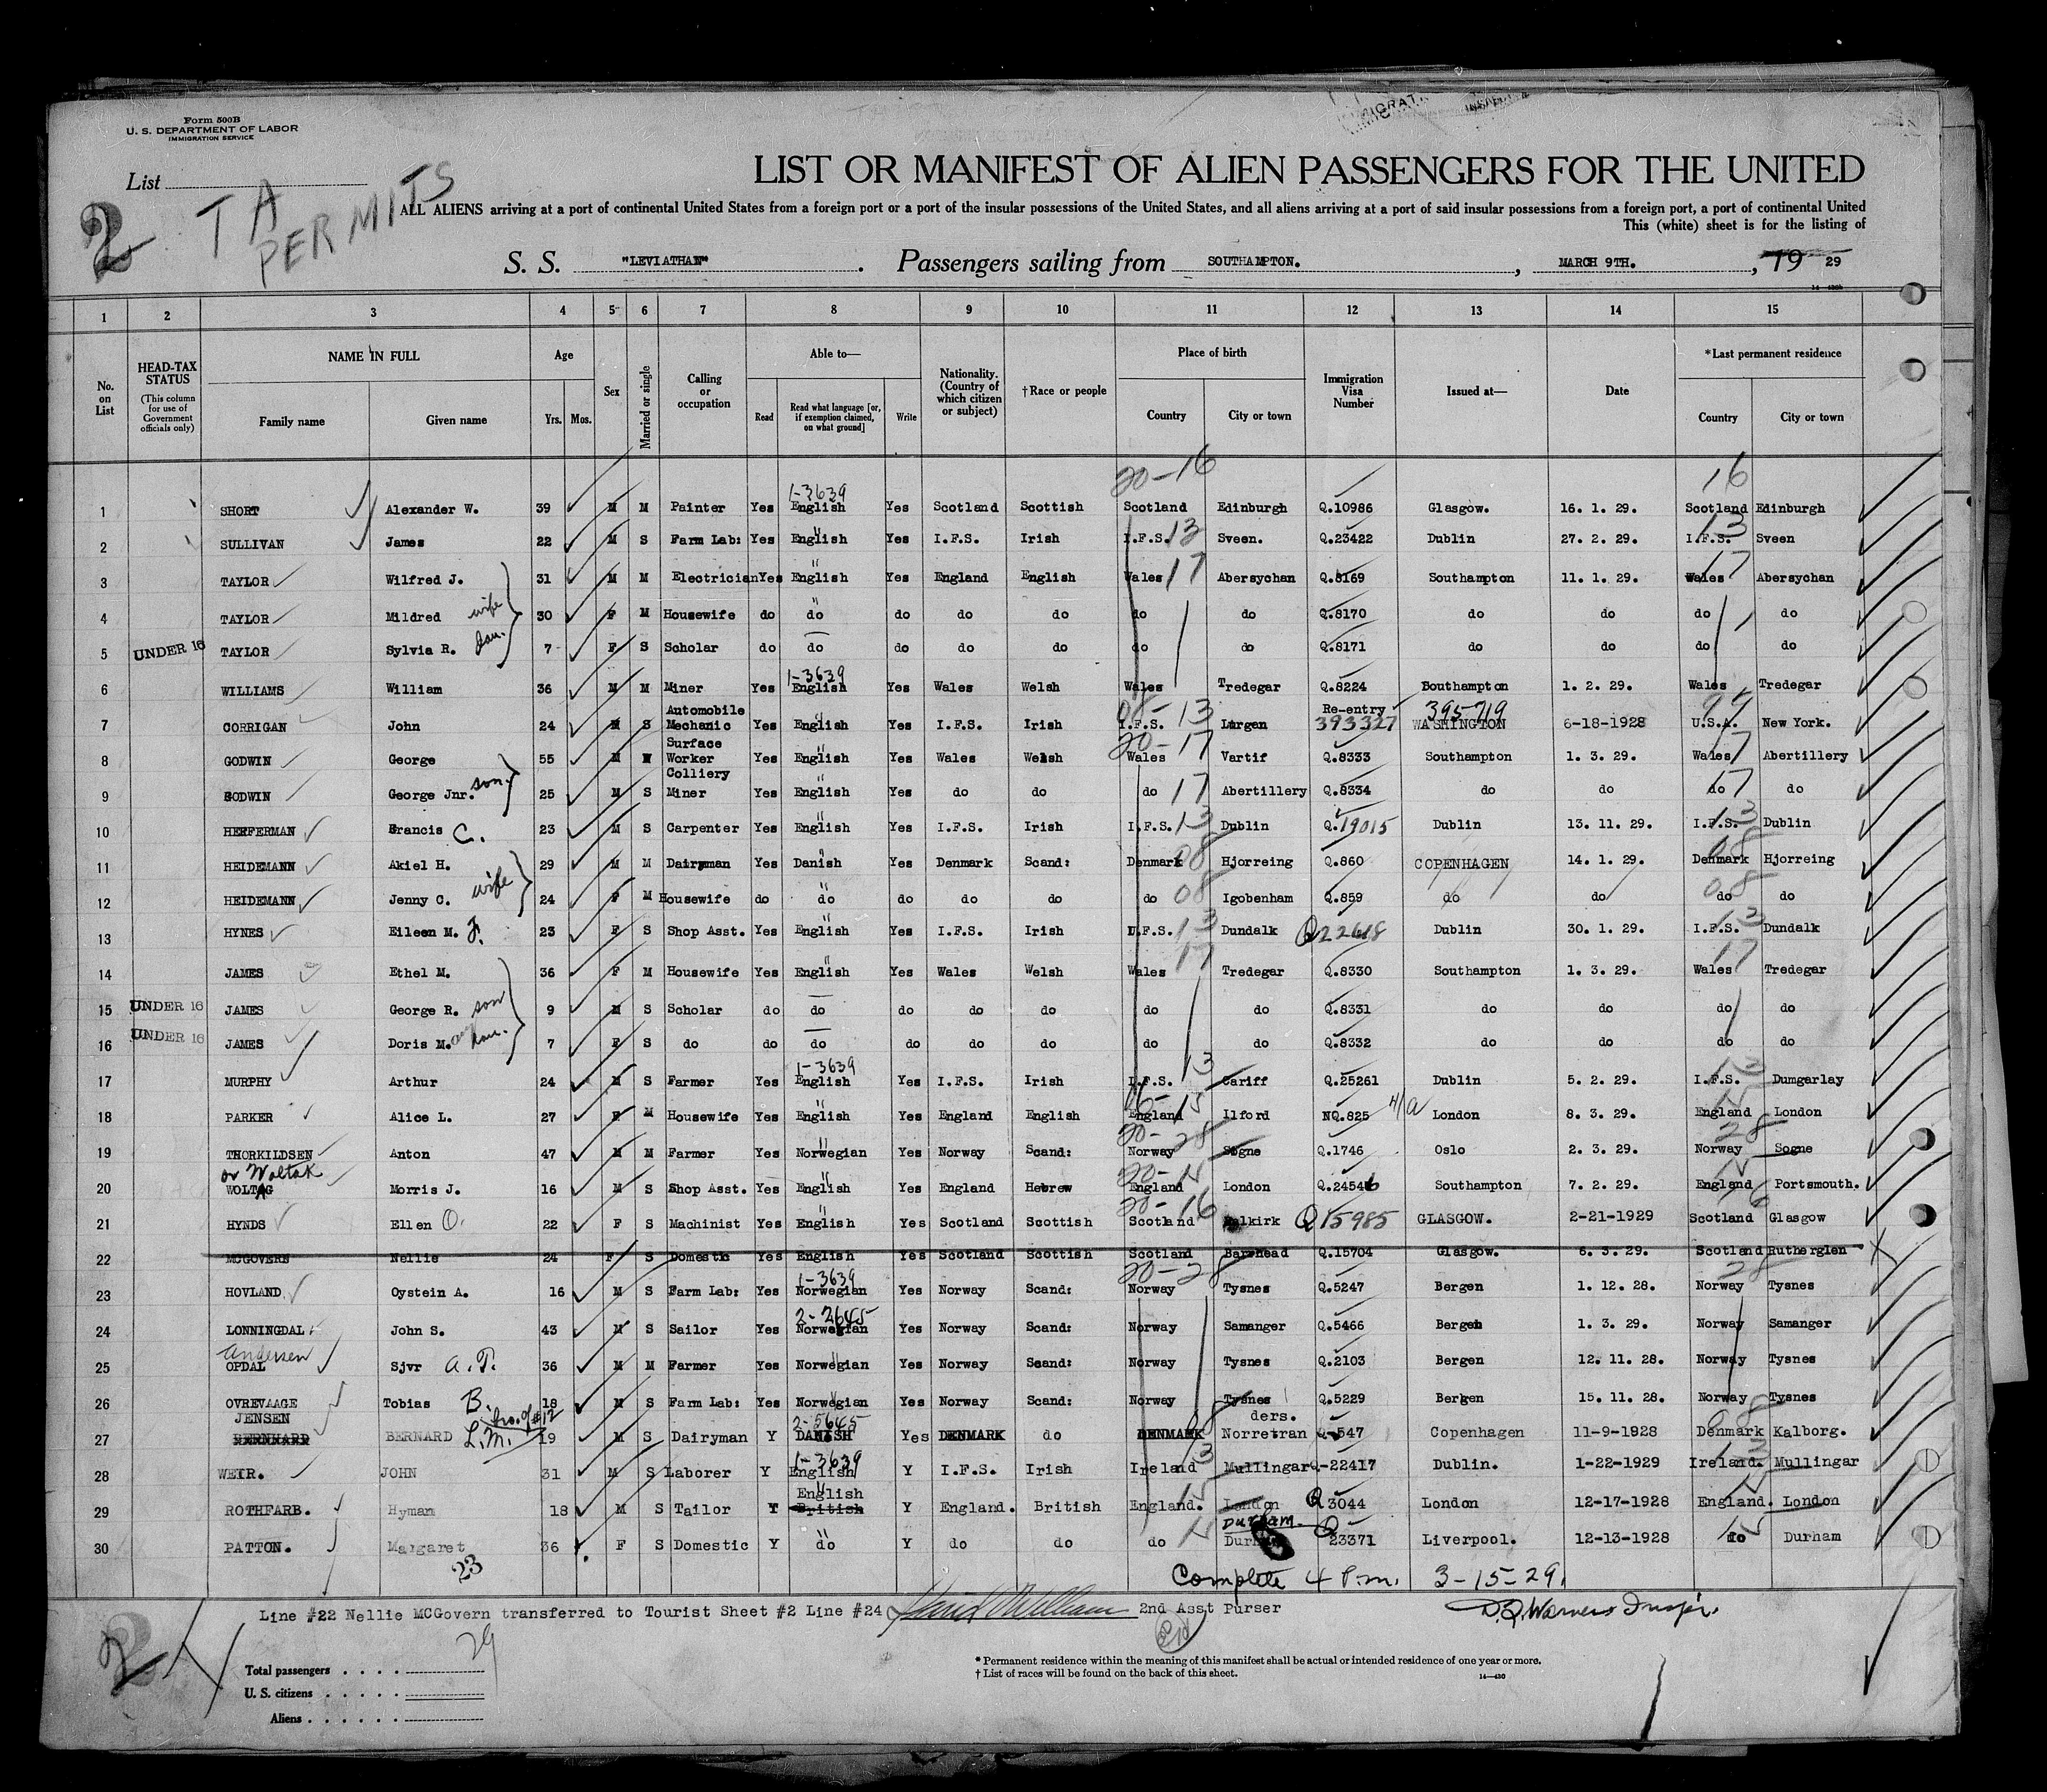 Form 500B
U. S. DEPARTMENT OF LABOR
IMMIGRATION SERVICE
List
2 TA PERMITS
LIST OR MANIFEST OF ALIEN PASSENGERS FOR THE UNITED
ALL ALIENS arriving at a port of continental United States from a foreign port or a port of the insular possessions of the United States, and all aliens arriving at a port of said insular possessions from a foreign port, a port of continental United
This (white) sheet is for the listing of
S. S. "LEVIATHAN". Passengers sailing from SOUTHAMPTON. , MARCH 9TH. , 19 29
1 2 3 4 5 6 7 8 9 10 11 12 13 14 15
No. on List HEAD-TAX STATUS (This column for use of Government officials only) NAME IN FULL Family name Given name Age Yrs. Mos. Sex Married or single Calling or occupation Able to— Read Read what language [or, if exemption claimed, on what ground] Write Nationality. (Country of which citizen or subject) †Race or people Place of birth Country City or town Immigration Visa Number Issued at— Date *Last permanent residence Country City or town
20-16 16
1-3639
1 SHORT Alexander W. 39 M M Painter Yes English Yes Scotland Scottish Scotland Edinburgh Q.10986 Glasgow. 16. 1. 29. Scotland Edinburgh
2 SULLIVAN James 22 M S Farm Lab: Yes English Yes I.F.S. 13 Irish I.F.S. Sveen. Q.23422 Dublin 27. 2. 29. I.F.S. 13 Sveen
3 TAYLOR Wilfred J. 31 M M Electrician Yes English Yes England English Wales 17 Abersychan Q.8169 Southampton 11. 1. 29. Wales 17 Abersychan
4 TAYLOR Mildred wife 30 F M Housewife do do do do do do do Q.8170 do do do do
5 UNDER 16 TAYLOR Sylvia R. dau. 7 F S Scholar do do do do do do do Q.8171 do do do do
1-3639
6 WILLIAMS William 36 M M Miner Yes English Yes Wales Welsh Wales Tredegar Q.8224 Southampton 1. 2. 29. Wales Tredegar
7 CORRIGAN John 24 M S Automobile Mechanic Yes English Yes I.F.S. Irish I.F.S. Lurgen Re-entry 393327 395719 WASHINGTON 6-18-1928 U.S.A. New York.
8 GODWIN George 55 M W Surface Worker Yes English Yes Wales Welsh Wales 20-17 Vartif Q.8333 Southampton 1. 3. 29. Wales 17 Abertillery
9 GODWIN George Jnr. son 25 M S Colliery Miner Yes English Yes do do do 17 Abertillery Q.8334 do do do 17 do
10 HEFFERMAN Francis C. 23 M S Carpenter Yes English Yes I.F.S. Irish I.F.S. 13 Dublin Q.19015 Dublin 13. 11. 29. I.F.S. 13 Dublin
11 HEIDEMANN Akiel H. 29 M M Dairyman Yes Danish Yes Denmark Scand: Denmark 08 Hjorreing Q.860 COPENHAGEN 14. 1. 29. Denmark 08 Hjorreing
12 HEIDEMANN Jenny C. wife 24 F M Housewife do do do do do do 08 Igobenham Q.859 do do do 08 do
13 HYNES Eileen M. F. 23 F S Shop Asst. Yes English Yes I.F.S. Irish I.F.S. 13 Dundalk Q22618 Dublin 30. 1. 29. I.F.S. 13 Dundalk
14 JAMES Ethel M. 36 F M Housewife Yes English Yes Wales Welsh Wales 17 Tredegar Q.8330 Southampton 1. 3. 29. Wales 17 Tredegar
15 UNDER 16 JAMES George R. son 9 M S Scholar do do do do do do do Q.8331 do do do do
16 UNDER 16 JAMES Doris M. dau. 7 F S do do do do do do do do Q.8332 do do do do
1-3639
17 MURPHY Arthur 24 M S Farmer Yes English Yes I.F.S. Irish I.F.S. 13 Cariff Q.25261 Dublin 5. 2. 29. I.F.S. 13 Dumgarlay
18 PARKER Alice L. 27 F M Housewife Yes English Yes England English England Ilford NQ.825 London 8. 3. 29. England London
19 THORKILDSEN Anton 47 M M Farmer Yes Norwegian Yes Norway Scand: Norway 20-28 Sogne Q.1746 Oslo 2. 3. 29. Norway 28 Sogne
or Woltak
20 WOLTAG Morris J. 16 M S Shop Asst. Yes English Yes England Hebrew England London Q.24546 Southampton 7. 2. 29. England Portsmouth.
21 HYNDS Ellen O. 22 F S Machinist Yes English Yes Scotland Scottish Scotland 20-16 Falkirk Q15985 GLASGOW. 2-21-1929 Scotland 16 Glasgow
22 MCGOVERN Nellie 24 F S Domestic Yes English Yes Scotland Scottish Scotland Barrhead Q.15704 Glasgow. 6. 3. 29. Scotland Rutherglen X
1-3639 20-28 28
23 HOVLAND Oystein A. 16 M S Farm Lab: Yes Norwegian Yes Norway Scand: Norway Tysnes Q.5247 Bergen 1. 12. 28. Norway Tysnes
2-2645
24 LONNINGDAL John S. 43 M S Sailor Yes Norwegian Yes Norway Scand: Norway Samanger Q.5466 Bergen 1. 3. 29. Norway Samanger
Andersen
25 OPDAL Sjvr A.T. 36 M M Farmer Yes Norwegian Yes Norway Scand: Norway Tysnes Q.2103 Bergen 12. 11. 28. Norway Tysnes
26 OVREVAAGE Tobias B. 18 M S Farm Lab: Yes Norwegian Yes Norway Scand: Norway Tysnes Q.5229 Bergen 15. 11. 28. Norway Tysnes
JENSEN bro. of #12 2-5645 ders. 08
27 BERNHARD BERNARD L.M. 19 M S Dairyman Y DANISH Yes DENMARK do DENMARK Norretran Q-547 Copenhagen 11-9-1928 Denmark Kalborg.
1-3639
28 WEIR. JOHN 31 M S Laborer Y English Y I.F.S. Irish Ireland 13 Mullingar Q-22417 Dublin. 1-22-1929 Ireland. 13 Mullingar
English
29 ROTHFARB. Hyman 18 M S Tailor Y British Y England. British England. 15 London Q 3044 London 12-17-1928 England. London
Durham Q
30 PATTON. Margaret 36 F S Domestic Y do Y do do do Durham 23371 Liverpool. 12-13-1928 do Durham
23
Complete 4 P.m. 3-15-29.
Line #22 Nellie MCGovern transferred to Tourist Sheet #2 Line #24 2nd Asst Purser
29
Total passengers
U. S. citizens
Aliens
* Permanent residence within the meaning of this manifest shall be actual or intended residence of one year or more.
† List of races will be found on the back of this sheet.
14—430